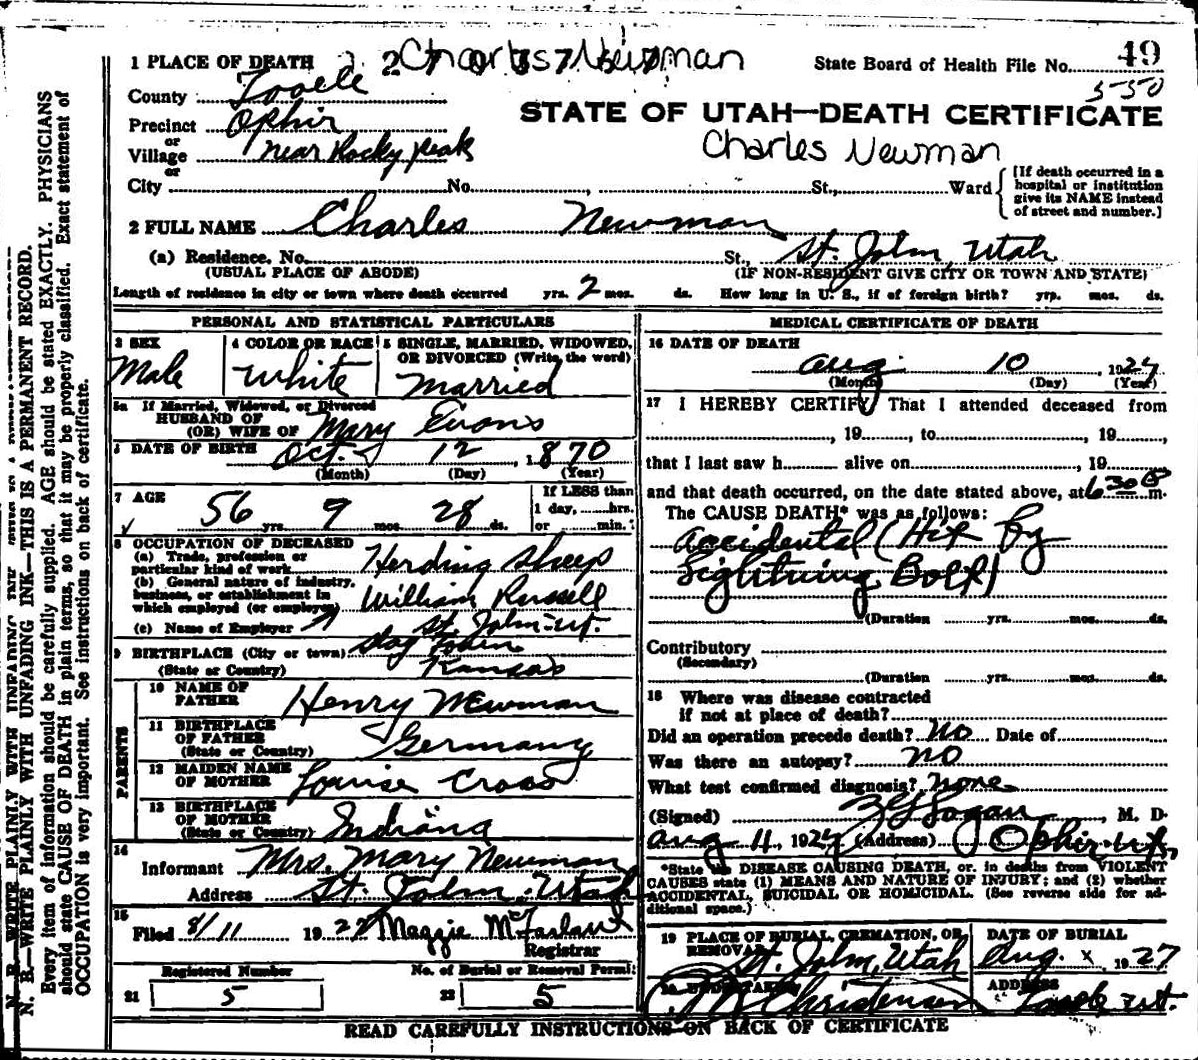 Charles Newman
1 PLACE OF DEATH
State Board of Health File No. 49
550
County Tooele
STATE OF UTAH—DEATH CERTIFICATE
Precinct Ophir
or
Charles Newman
Village near Rocky peak
or
City No. , St., Ward
[If death occurred in a hospital or institution give its NAME instead of street and number.]
2 FULL NAME Charles Newman
(a) Residence. No. St., St. John, Utah
(USUAL PLACE OF ABODE) (IF NON-RESIDENT GIVE CITY OR TOWN AND STATE)
Length of residence in city or town where death occurred yrs. 2 mos. ds. How long in U. S., if of foreign birth? yrs. mos. ds.
PERSONAL AND STATISTICAL PARTICULARS
3 SEX 4 COLOR OR RACE 5 SINGLE, MARRIED, WIDOWED,
OR DIVORCED (Write the word)
Male White Married
5a If Married, Widowed, or Divorced
HUSBAND OF
(OR) WIFE OF Mary Evans
DATE OF BIRTH Oct. 12, 1870
(Month) (Day) (Year)
7 AGE 56 yrs. 9 mos. 28 ds.
If LESS than
1 day, hrs.
or min.
8 OCCUPATION OF DECEASED
(a) Trade, profession or
particular kind of work Herding Sheep
(b) General nature of industry,
business, or establishment in
which employed (or employer) William Russell
(c) Name of Employer St. John-Ut.
9 BIRTHPLACE (City or town)
(State or Country) Kansas
PARENTS
10 NAME OF
FATHER Henry Newman
11 BIRTHPLACE
OF FATHER
(State or Country) Germany
12 MAIDEN NAME
OF MOTHER Louise Cross
13 BIRTHPLACE
OF MOTHER
(State or Country) Indiana
14
Informant Mrs. Mary Newman
Address St. John, Utah
15
Filed 8/11 1927 Maggie McFarland
Registrar
Registered Number No. of Burial or Removal Permit
21 5 22 5
MEDICAL CERTIFICATE OF DEATH
16 DATE OF DEATH
Aug 10, 1927
(Month) (Day) (Year)
17 I HEREBY CERTIFY That I attended deceased from
, 19 , to , 19 ,
that I last saw h alive on , 19
and that death occurred, on the date stated above, at 6 30 P m.
The CAUSE DEATH* was as follows:
Accidental (Hit by
Lightning Bolt)
(Duration yrs. mos. ds.
Contributory
(Secondary)
(Duration yrs. mos. ds.
18 Where was disease contracted
if not at place of death?
Did an operation precede death? No Date of
Was there an autopsy? No
What test confirmed diagnosis? None
(Signed) Logan, M. D.
Aug 11, 1927 (Address) Ophir-Ut.
*State DISEASE CAUSING DEATH, or, in deaths from VIOLENT
CAUSES state (1) MEANS AND NATURE OF INJURY; and (2) whether
ACCIDENTAL, SUICIDAL OR HOMICIDAL. (See reverse side for ad-
ditional space.)
19 PLACE OF BURIAL, CREMATION, OR
REMOVAL St. John, Utah
DATE OF BURIAL
Aug. x 1927
UNDERTAKER Christensen
ADDRESS Tooele Ut.
READ CAREFULLY INSTRUCTIONS ON BACK OF CERTIFICATE
N. B.—WRITE PLAINLY WITH UNFADING INK—THIS IS A PERMANENT RECORD.
Every item of information should be carefully supplied. AGE should be stated EXACTLY. PHYSICIANS
should state CAUSE OF DEATH in plain terms, so that it may be properly classified. Exact statement of
OCCUPATION is very important. See instructions on back of certificate.